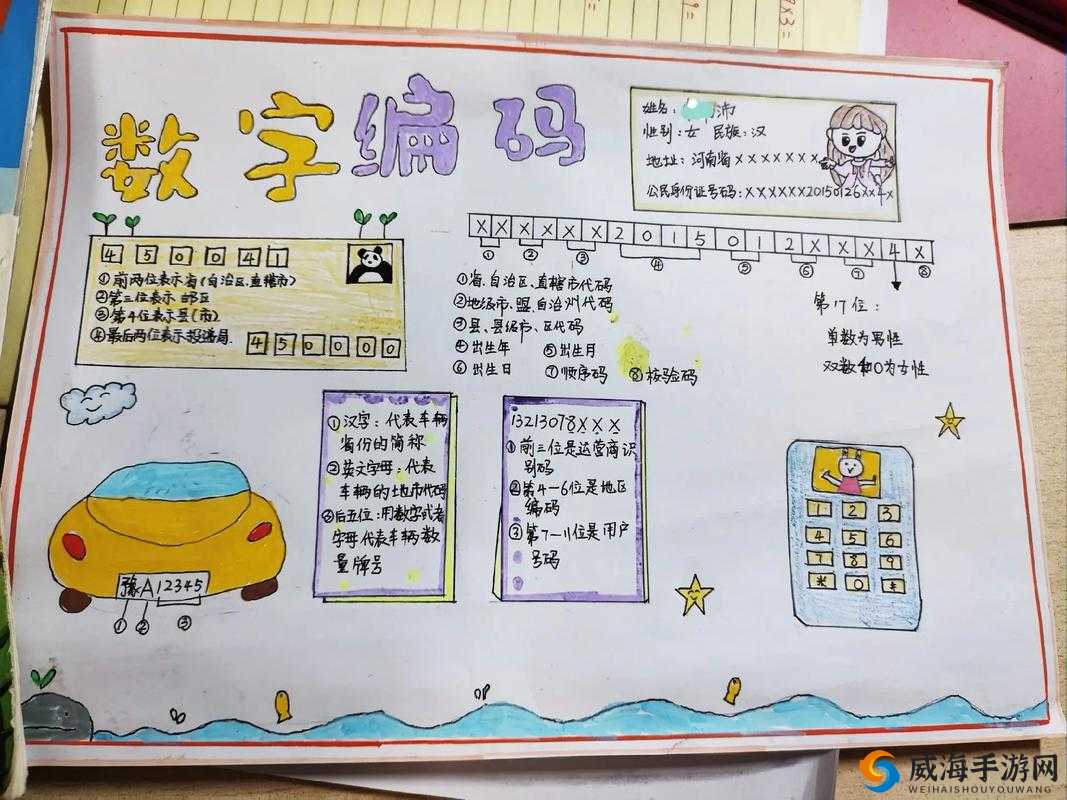 数字编码
姓名: 沛
性别:女 民族:汉
地址:河南省XXXXXXX
公民身份证号码:XXXXXX20150126XX4X
XXXXXX20150 12XXX4X
① ② ③ ④ ⑤ ⑥ ⑦ ⑧
①省、自治区、直辖市代码
②地级市、盟、自治州代码
③县、县级市、区代码
④出生年 ⑤出生月
⑥出生日 ⑦顺序码 ⑧校验码
第17位:
单数为男性
双数和0为女性
450041
①前两位表示省(自治区、直辖市)
②第三位表示邮区
③第4位表示县(市)
④最后两位表示投递局.
450000
①汉字:代表车辆
省份的简称
②英文字母:代表
车辆的地市代码
③后五位:用数字或者
字母代表车辆数
量牌号
13213078XXX
①前三位是运营商识
别码
②第4-6位是地区
编码
③第7-11位是用户
号码
豫A12345
① ② ③
1 2 3
4 5 6
7 8 9
* 0 #
7×3=
威海手游网
WEIHAISHOUYOUWANG